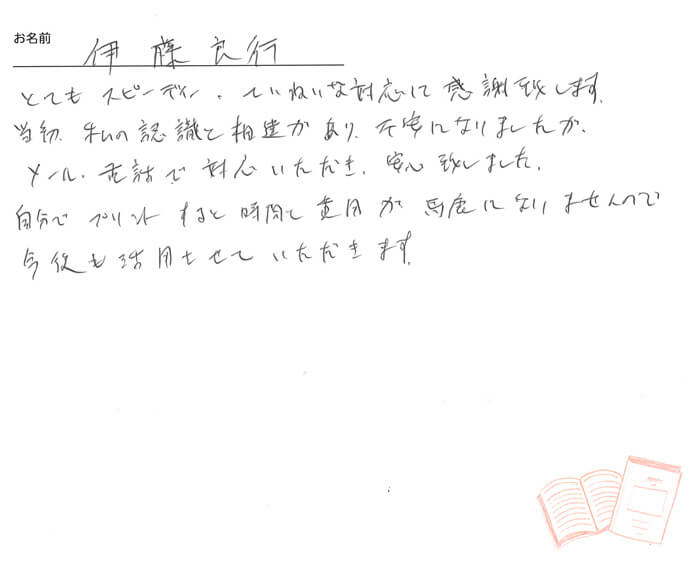 お名前 伊藤良行
とてもスピーディー、ていねいな対応に感謝致します。
当初、私の認識と相違があり、不安になりましたが、
メール、電話で対応いただき、安心致しました。
自分でプリントすると時間と費用が馬鹿になりませんので
今後も活用させていただきます。